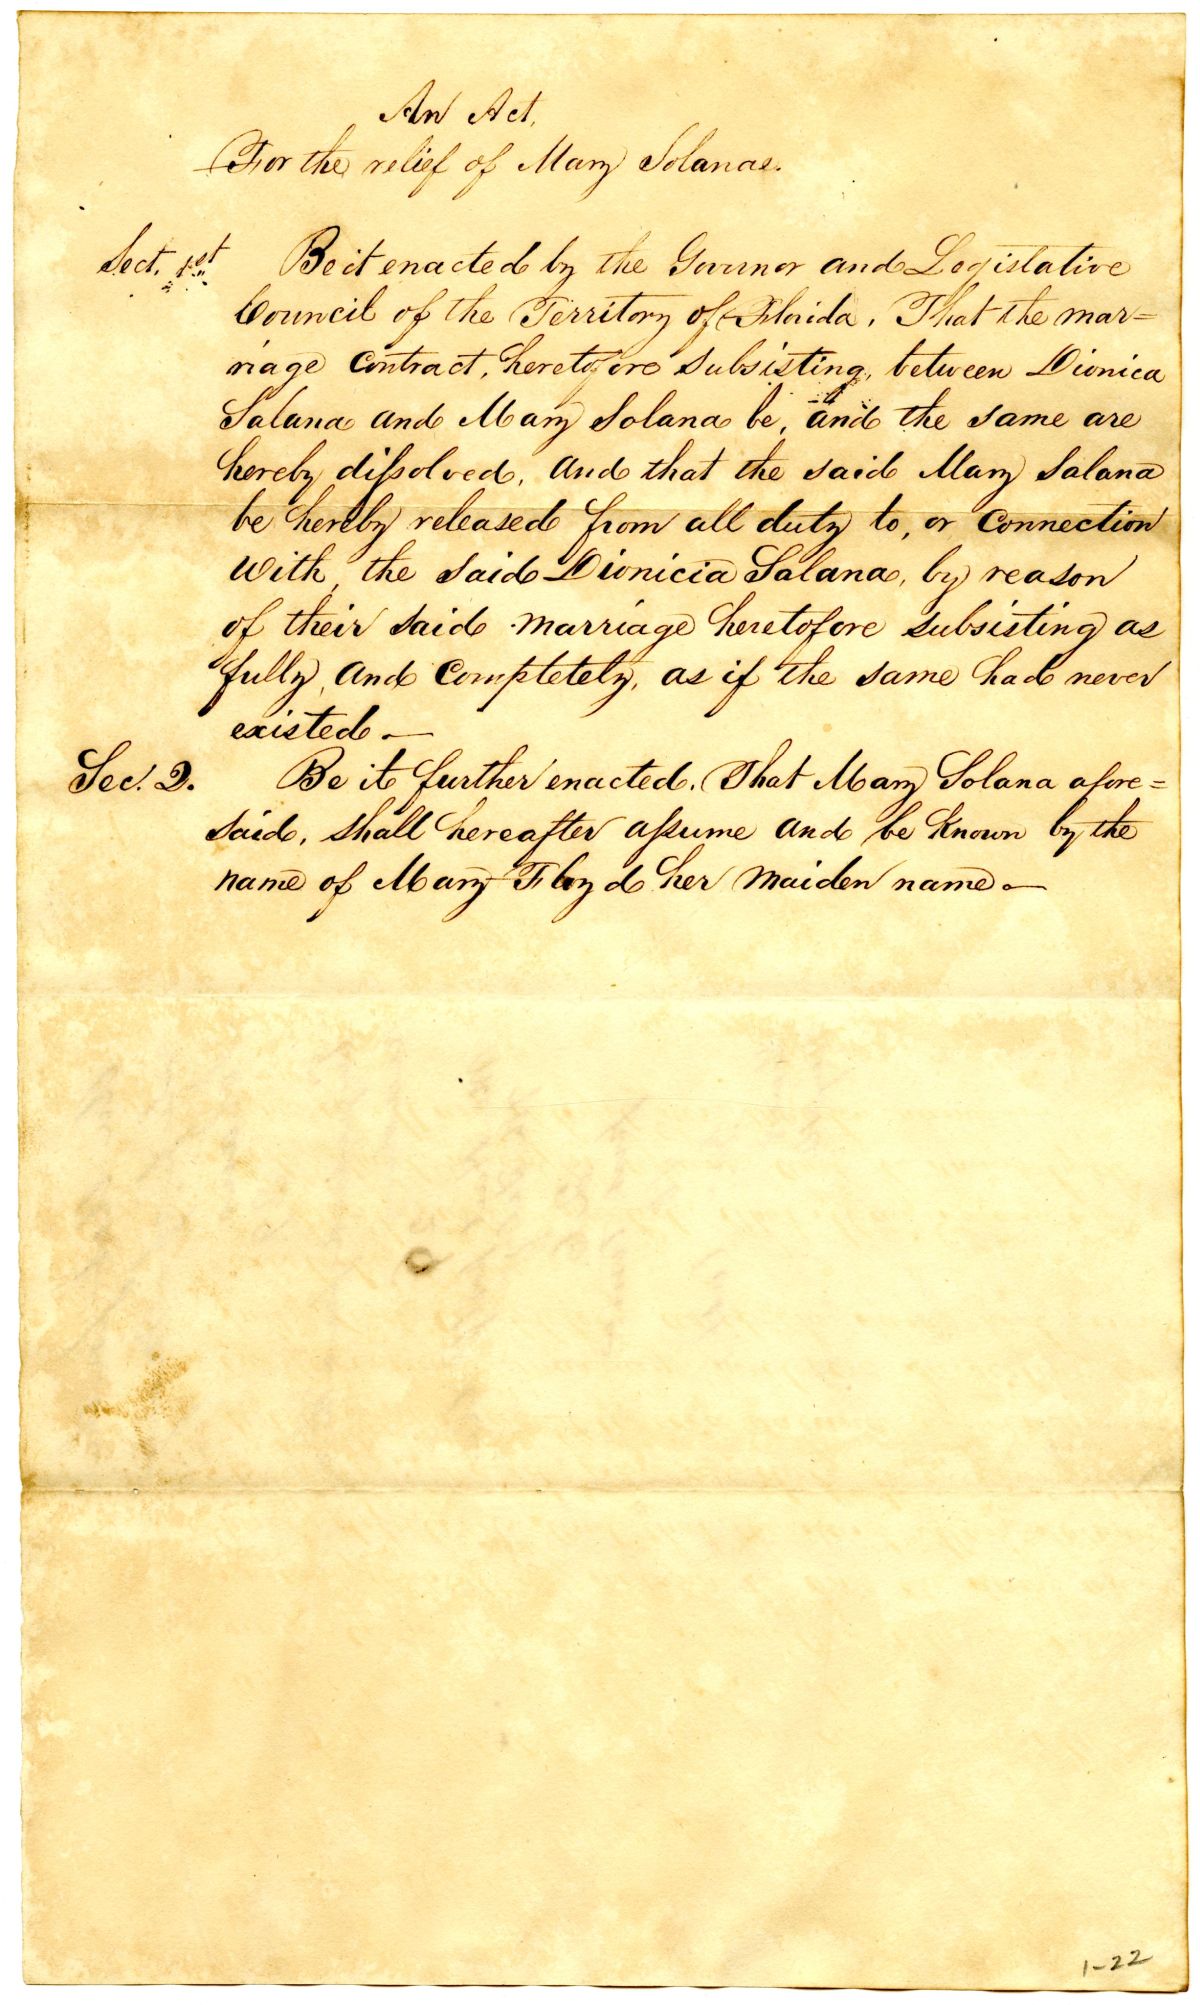 An Act,
For the relief of Mary Solanas.
Sect. 1st Be it enacted by the Governor and Legislative
Council of the Territory of Florida, That the mar=
riage contract, heretofore subsisting, between Dionica
Salana and Mary Solana be, and the same are
hereby dissolved, and that the said Mary Salana
be hereby released from all duty to, or connection
with, the said Dionicia Salana, by reason
of their said marriage heretofore subsisting as
fully, and completely, as if the same had never
existed —
Sec. 2. Be it further enacted, That Mary Solana afore=
said, shall hereafter assume and be known by the
name of Mary Floyd her maiden name —
1-22